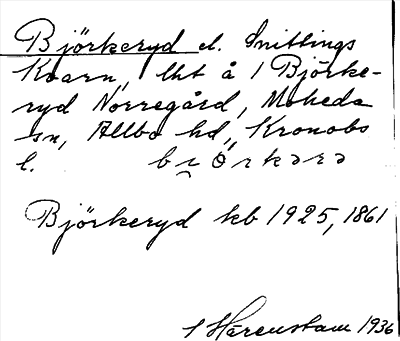 Björkeryd el. Snittings
Kvarn, lht å 1 Björke-
ryd Norregård, Moheda
sn, Allbo hd, Kronobs
l. bi̯örkərə
Björkeryd kb 1925, 1861
S Härenstam 1936